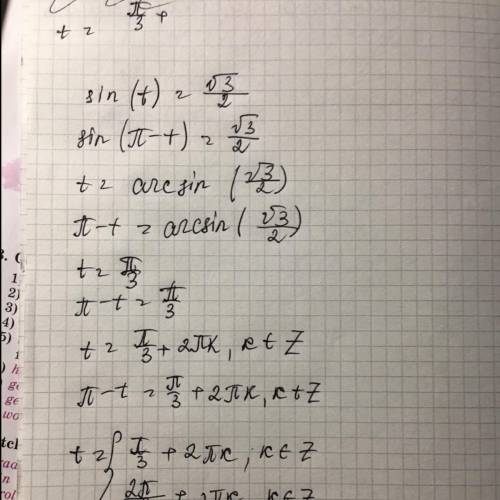 t = π/3 +
sin (t) = √3/2
sin (π-t) = √3/2
t = arcsin (√3/2)
π-t = arcsin (√3/2)
t = π/3
π-t = π/3
t = π/3 + 2πк, к ∈ Z
π-t = π/3 + 2πк, к ∈ Z
t = { π/3 + 2πк, к ∈ Z
2π/3 + 2πк, к ∈ Z
1
2)
3)
4)
5)